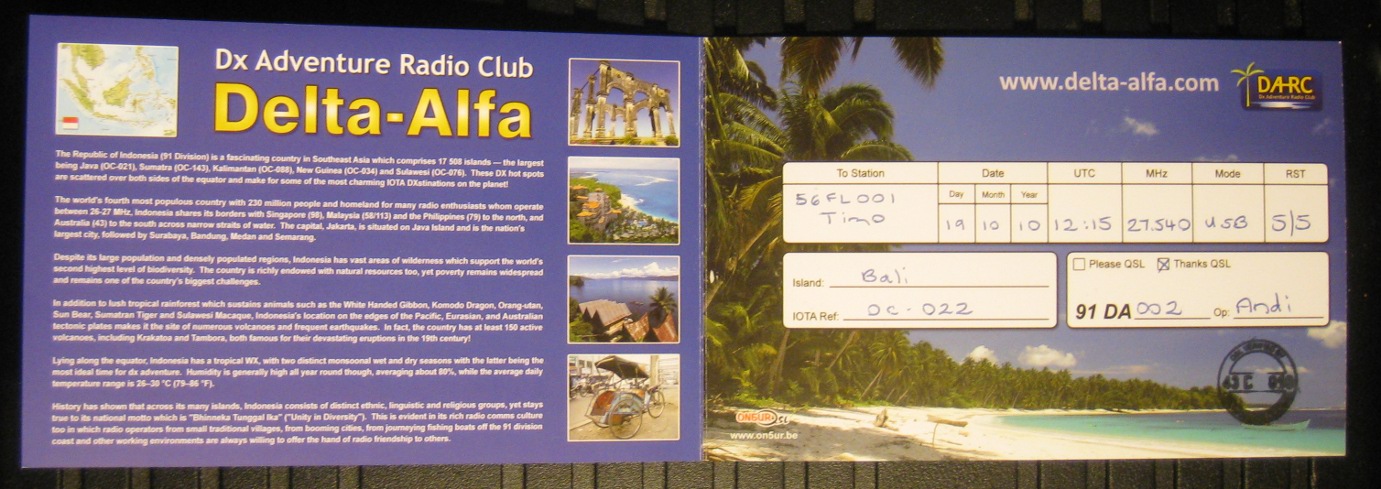 Dx Adventure Radio Club
Delta-Alfa
The Republic of Indonesia (91 Division) is a fascinating country in Southeast Asia which comprises 17 508 islands — the largest
being Java (OC-021), Sumatra (OC-143), Kalimantan (OC-088), New Guinea (OC-034) and Sulawesi (OC-076). These DX hot spots
are scattered over both sides of the equator and make for some of the most charming IOTA DXstinations on the planet!
The world's fourth most populous country with 230 million people and homeland for many radio enthusiasts whom operate
between 26-27 MHz, Indonesia shares its borders with Singapore (98), Malaysia (58/113) and the Philippines (79) to the north, and
Australia (43) to the south across narrow straits of water. The capital, Jakarta, is situated on Java Island and is the nation's
largest city, followed by Surabaya, Bandung, Medan and Semarang.
Despite its large population and densely populated regions, Indonesia has vast areas of wilderness which support the world's
second highest level of biodiversity. The country is richly endowed with natural resources too, yet poverty remains widespread
and remains one of the country's biggest challenges.
In addition to lush tropical rainforest which sustains animals such as the White Handed Gibbon, Komodo Dragon, Orang-utan,
Sun Bear, Sumatran Tiger and Sulawesi Macaque, Indonesia's location on the edges of the Pacific, Eurasian, and Australian
tectonic plates makes it the site of numerous volcanoes and frequent earthquakes. In fact, the country has at least 150 active
volcanoes, including Krakatoa and Tambora, both famous for their devastating eruptions in the 19th century!
Lying along the equator, Indonesia has a tropical WX, with two distinct monsoonal wet and dry seasons with the latter being the
most ideal time for dx adventure. Humidity is generally high all year round though, averaging about 80%, while the average daily
temperature range is 26–30 °C (79–86 °F).
History has shown that across its many islands, Indonesia consists of distinct ethnic, linguistic and religious groups, yet stays
true to its national motto which is "Bhinneka Tunggal Ika" ("Unity in Diversity"). This is evident in its rich radio comms culture
too in which radio operators from small traditional villages, from booming cities, from journeying fishing boats off the 91 division
coast and other working environments are always willing to offer the hand of radio friendship to others.
www.delta-alfa.com
DA-RC
Dx Adventure Radio Club
To Station Date UTC MHz Mode RST
Day Month Year
56FL001
Timo
19 10 10 12:15 27.540 USB 5/5
Island: Bali
IOTA Ref: OC-022
Please QSL Thanks QSL
91 DA 002 Op: Andi
ON5UR
www.on5ur.be